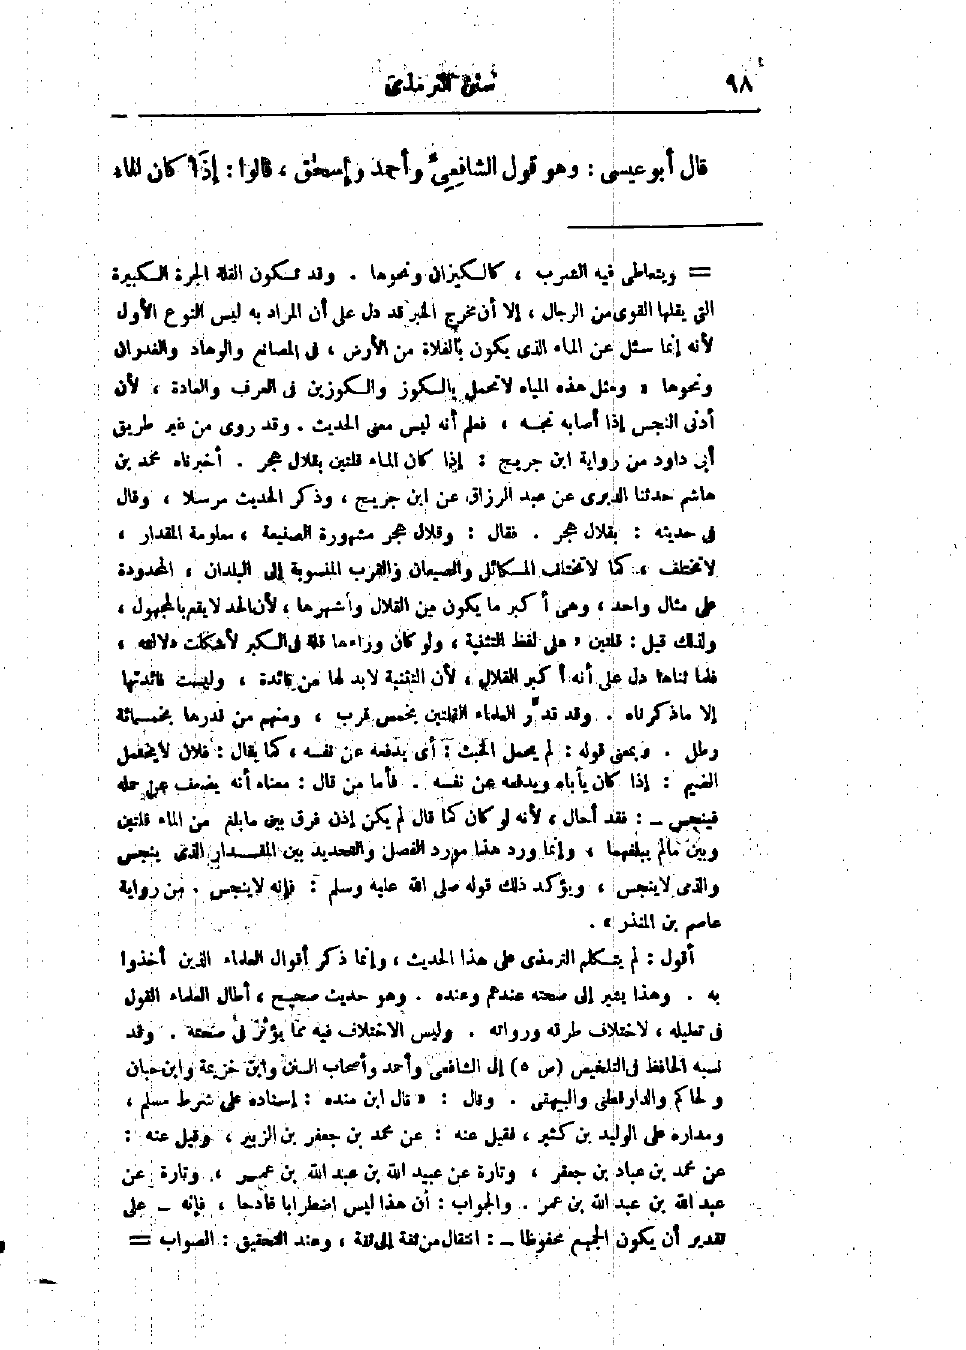 ٩٨
سنن الترمذى
قال أبو عيسى : وهو قول الشافعىِّ وأحمد وإسحٰق ، قالوا : إذَا كان الماء
= ويتعاطى فيه الشرب ، كالكيزان ونحوها . وقد تكون القلة الجرة الكبيرة
التى يقلها القوى من الرجال ، إلا أن مخرج الخبر قد دل على أن المراد به ليس النوع الأول
لأنه إنما سئل عن الماء الذى يكون بالفلاة من الأرض ، فى المصانع والوهاد والغدران
ونحوها ، ومثل هذه المياه لا تحمل بالكوز والكوزين فى العرف والعادة ، لأن
أدنى النجس إذا أصابه نجسه ، فعلم أنه ليس معنى الحديث . وقد روى من غير طريق
أبى داود من رواية ابن جريج : إذا كان الماء قلتين بقلال هجر . أخبرناه محمد بن
هاشم حدثنا الدبرى عن عبد الرزاق عن ابن جريج ، وذكر الحديث مرسلا ، وقال
فى حديثه : بقلال هجر . فقال : وقلال هجر مشهورة الصنيعة ، معلومة المقدار ،
لا تختلف ، كما لا تختلف المكائل والصيعان والقرب المنسوبة إلى البلدان ، المحدودة
على مثال واحد ، وهى أكبر ما يكون من القلال وأشهرها ، لأن الحد لا يقع بالمجهول ،
ولذلك قيل : قلتين ، على لفظ التثنية ، ولو كان وراءها قلة فى الكبر لأشكلت دلالته ،
فلما ثناها دل على أنه أكبر القلال ، لأن التثنية لابد لها من فائدة ، وليست فائدتها
إلا ما ذكرناه . وقد قدّر العلماء القلتين بخمس قرب ، ومنهم من قدرها بخمسمائة
رطل . ومعنى قوله : لم يحمل الخبث : أى يدفعه عن نفسه ، كما يقال : فلان لا يحتمل
الضيم : إذا كان يأباه ويدفعه عن نفسه . فأما من قال : معناه أنه يضعف عن حمله
فينجس ــ : فقد أحال ، لأنه لو كان كما قال لم يكن إذن فرق بين ما بلغ من الماء قلتين
وبين مالم يبلغهما ، وإنما ورد هذا مورد الفصل والتحديد بين المقدار الذى ينجس
والذى لا ينجس ، ويؤكد ذلك قوله صلى الله عليه وسلم : فإنه لا ينجس . من رواية
عاصم بن المنذر » .
أقول : لم يتكلم الترمذى على هذا الحديث ، وإنما ذكر أقوال العلماء الذين أخذوا
به . وهذا يشير إلى صحته عندهم وعنده . وهو حديث صحيح ، أطال العلماء القول
فى تعليله ، لاختلاف طرقه ورواته . وليس الاختلاف فيه مما يؤثر فى صحته . وقد
نسبه الحافظ فى التلخيص (ص ٥) إلى الشافعى وأحمد وأصحاب السنن وابن خزيمة وابن حبان
والحاكم والدارقطنى والبيهقى . وقال : « قال ابن منده : إسناده على شرط مسلم ،
ومداره على الوليد بن كثير ، فقيل عنه : عن محمد بن جعفر بن الزبير ، وقيل عنه :
عن محمد بن عباد بن جعفر ، وتارة عن عبيد الله بن عبد الله بن عمر ، وتارة عن
عبد الله بن عبد الله بن عمر . والجواب : أن هذا ليس اضطرابا قادحا ، فإنه ــ على
تقدير أن يكون الجميع محفوظا ــ : انتقال من ثقة إلى ثقة ، وعند التحقيق : الصواب =